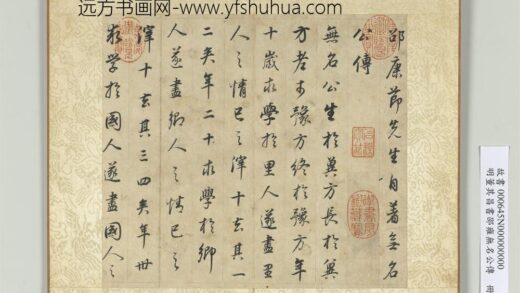 远方书画网- www.yfshuhua.com
邵康節先生自著無名
公傳
無名公生於冀方長於冀
方老于豫方終於豫方年
十歲求學於里人遂盡里
人之情已之滓十去其一
二矣年二十求學於鄉
人遂盡鄉人之情已之
滓十去其三四矣年卅
求學於國人遂盡國人之
故書000645N000000000
明董其昌書邵雍無名公傳 冊